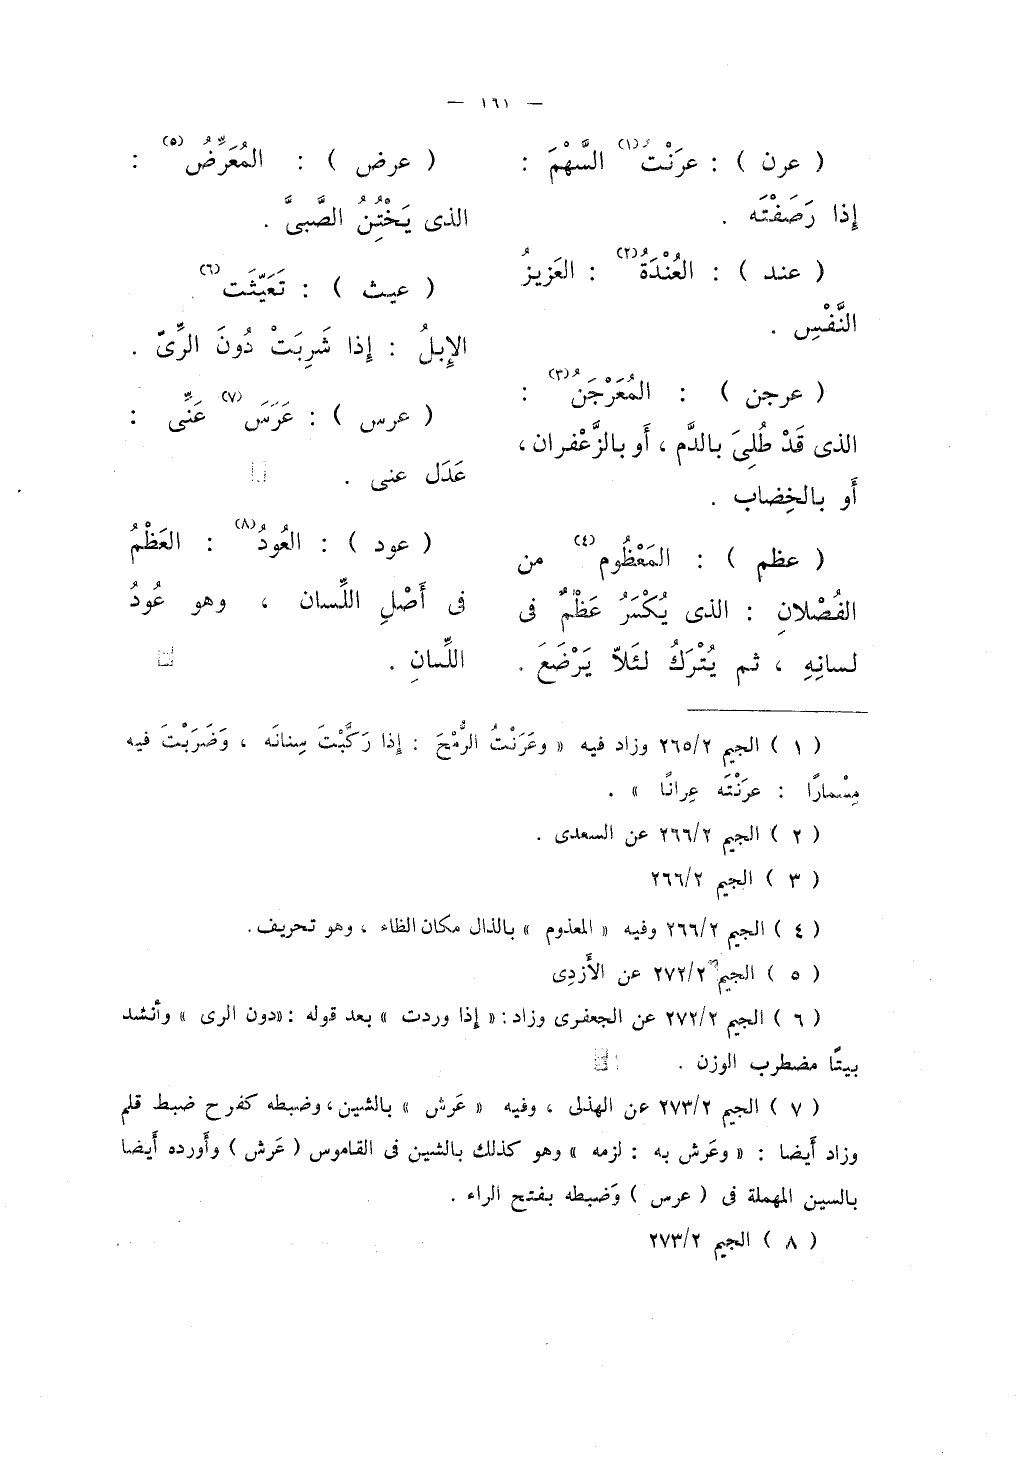 — ١٦١ —
( عرن ) : عرَنْتُ(١) السَّهْمَ :
إذا رَصَفْتَه .
( عند ) : العُنْدَةُ(٢) : العَزيزُ
النَّفْسِ .
( عرجن ) : المُعَرْجَنُ(٣) :
الذى قَدْ طُلِىَ بالدَّم ، أَو بالزَّعْفران ،
أَو بالخِضاب .
( عظم ) : المَعْظُوم(٤) من
الفُصْلانِ : الذى يُكْسَرُ عَظْمٌ فى
لسانِهِ ، ثم يُتْرَكُ لئَلاّ يَرْضَعَ .
( عرض ) : المُعَرِّضُ(٥) :
الذى يَخْتِنُ الصَّبىَّ .
( عيث ) : تَعَيَّثَت(٦)
الإِبلُ : إِذا شَرِبَتْ دُونَ الرِّىّ .
( عرس ) : عَرَسَ(٧) عَنِّى :
عَدَل عنى .
( عود ) : العُودُ(٨) : العَظْمُ
فى أَصْلِ اللِّسان ، وهو عُودُ
اللِّسانِ .
( ١ ) الجيم ٢٦٥/٢ وزاد فيه « وعَرَنْتُ الرُّمْحَ : إذا رَكَّبْتَ سِنانَه ، وَضَرَبْتَ فيه
مِسْمارًا : عرَنْتَه عِرانًا » .
( ٢ ) الجيم ٢٦٦/٢ عن السعدى .
( ٣ ) الجيم ٢٦٦/٢
( ٤ ) الجيم ٢٦٦/٢ وفيه « المعذوم » بالذال مكان الظاء ، وهو تحريف.
( ٥ ) الجيم ٢٧٢/٢ عن الأَزدِى
( ٦ ) الجيم ٢٧٢/٢ عن الجعفرى وزاد : « إذا وردت » بعد قوله : «دون الرى » وأنشد
بيتًا مضطرب الوزن .
( ٧ ) الجيم ٢٧٣/٢ عن الهذلى ، وفيه « عَرش » بالشين ، وضبطه كفرح ضبط قلم
وزاد أَيضا : « وعَرش به : لزمه » وهو كذلك بالشين فى القاموس ( عَرش ) وأَورده أَيضا
بالسين المهملة فى ( عرس ) وَضبطه بفتح الراء .
( ٨ ) الجيم ٢٧٣/٢